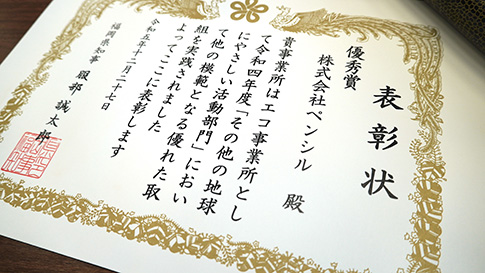 表彰状
優秀賞
株式会社ペンシル 殿
貴事業所はエコ事業所とし
て令和四年度「その他の地球
にやさしい活動部門」におい
て他の模範となる優れた取
組を実践されました
よってここに表彰します
令和五年十二月二十七日
福岡県知事 服部誠太郎